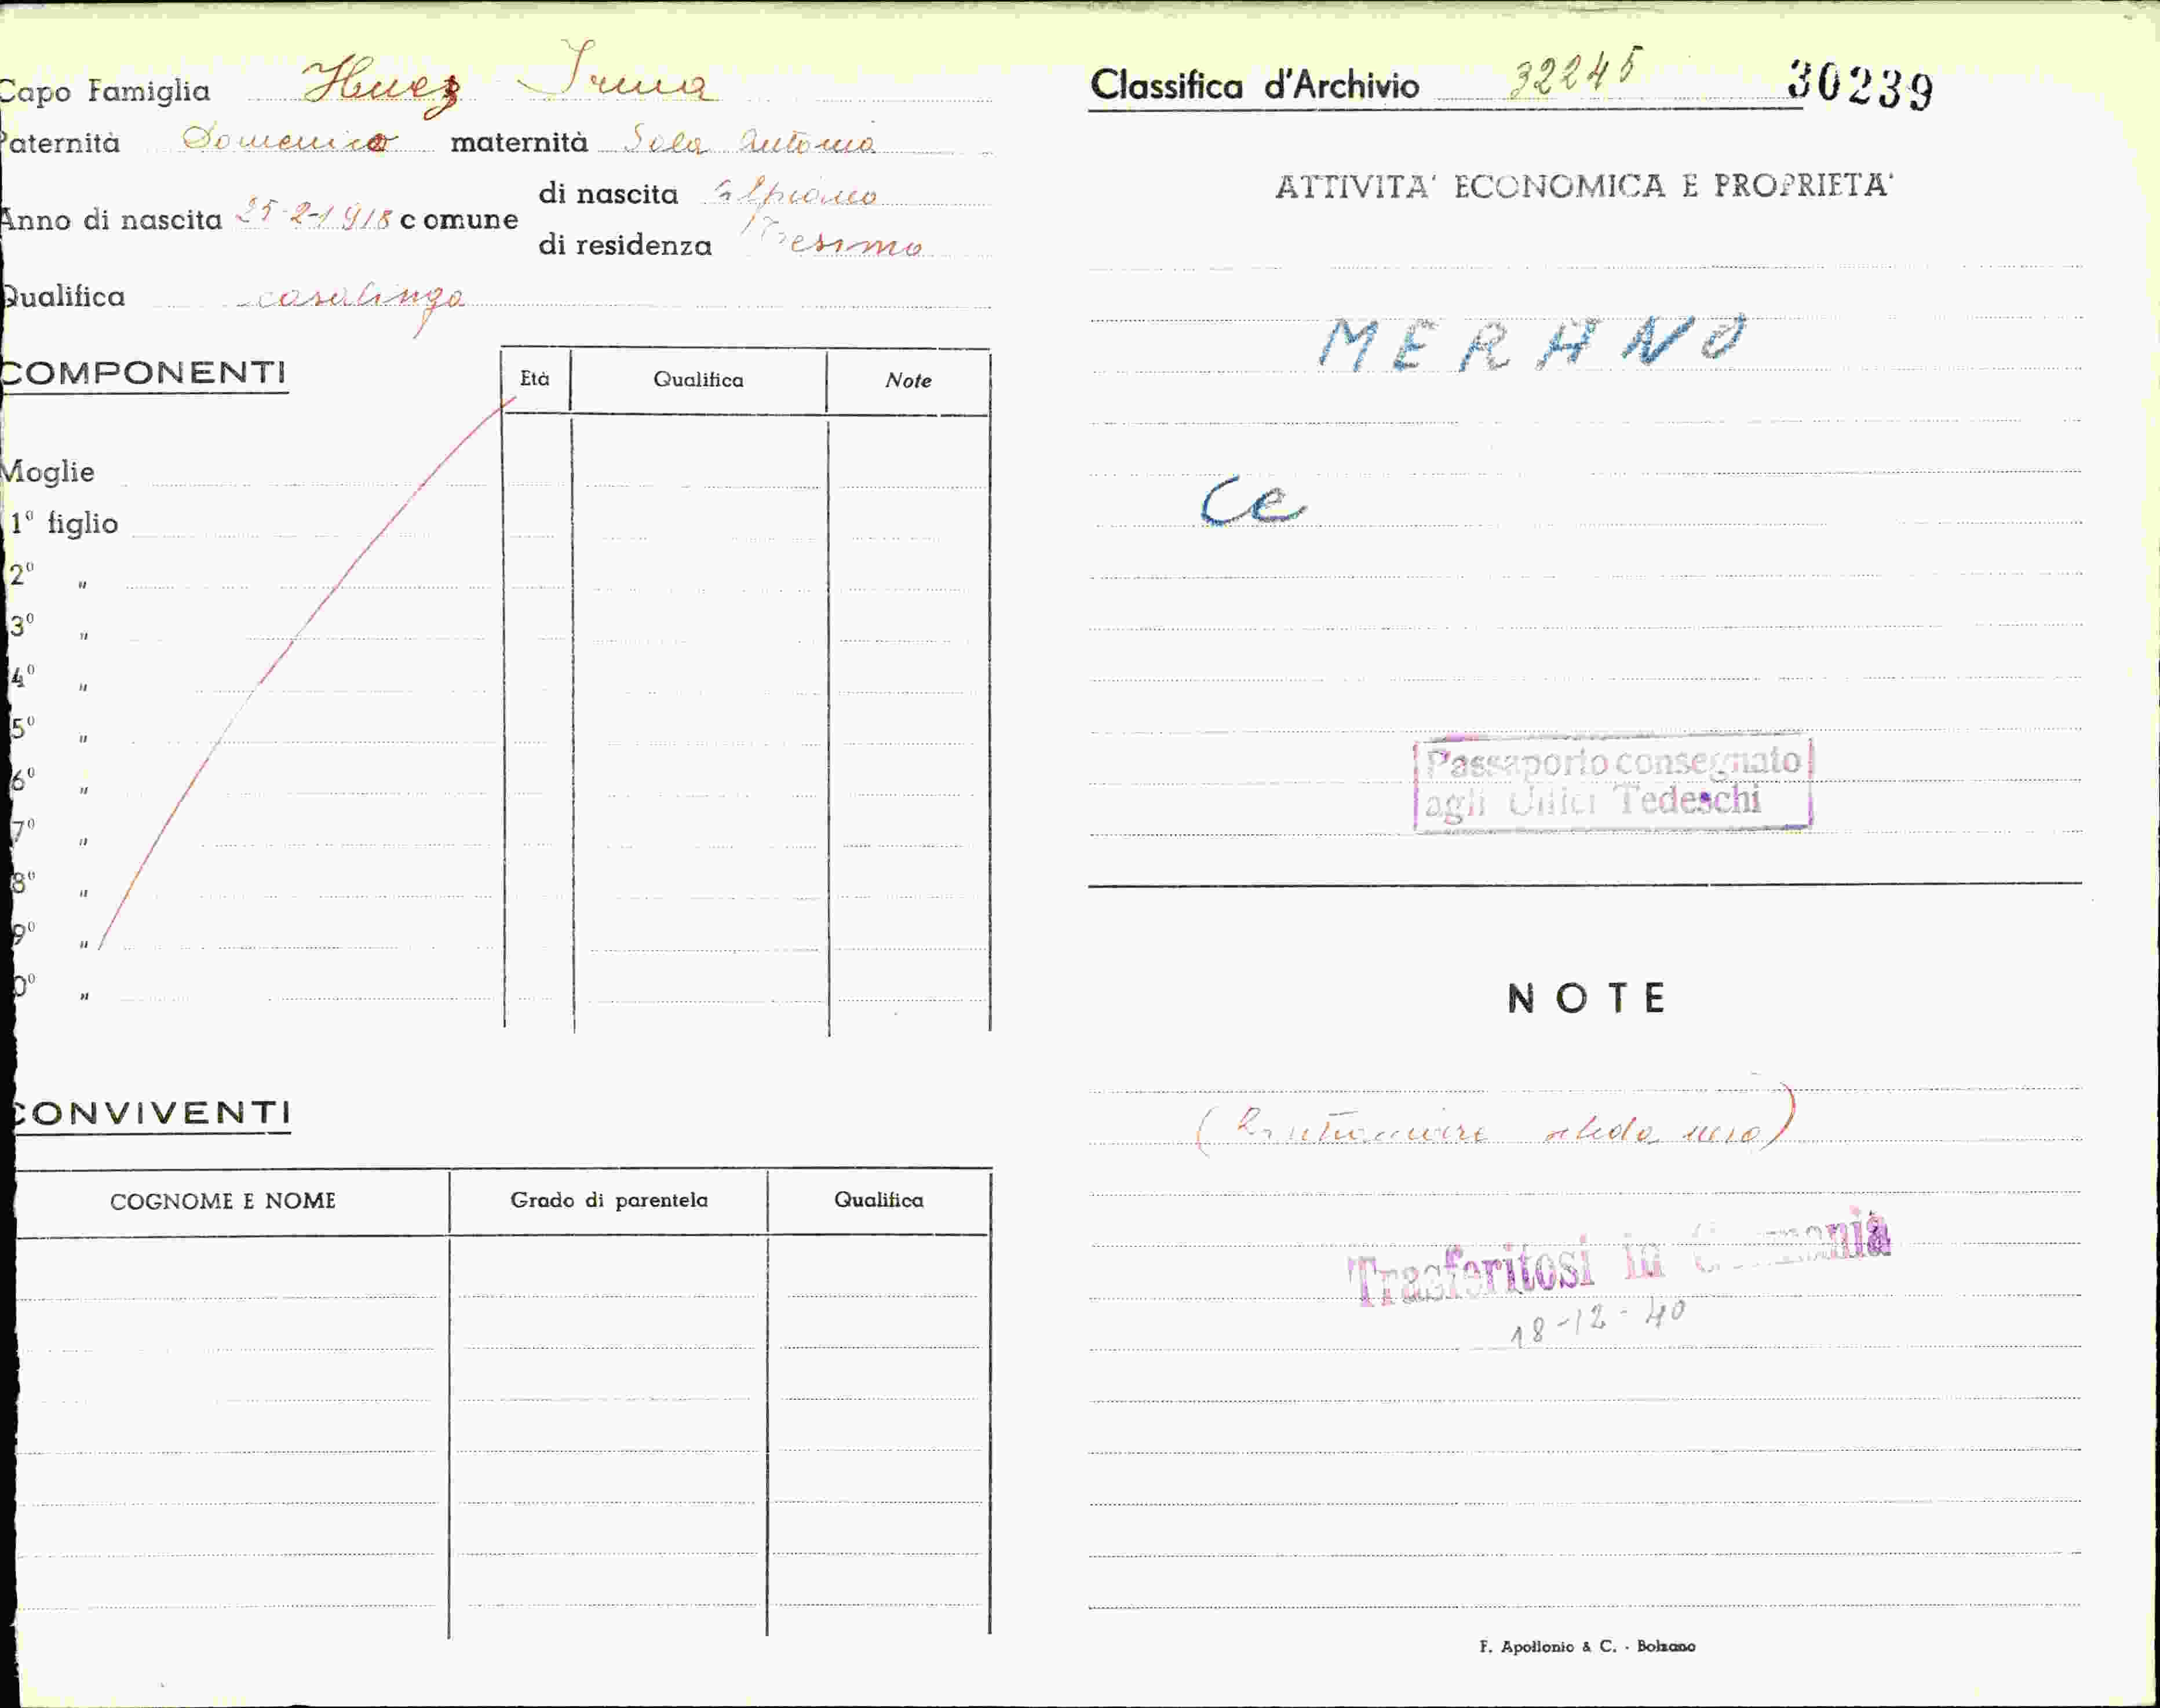 Capo Famiglia Huez Irma
Paternità Domenico maternità Sola Antonia
Anno di nascita 25-2-1918 comune
di nascita
di residenza Tresimo
Qualifica casalinga
COMPONENTI
Età Qualifica Note
Moglie
1º figlio
2º "
3º "
4º "
5º "
6º "
7º "
8º "
9º "
0º "
CONVIVENTI
COGNOME E NOME Grado di parentela Qualifica
Classifica d'Archivio 32245 30239
ATTIVITA' ECONOMICA E PROPRIETA'
MERANO
Ce
Passaporto consegnato
agli Uffici Tedeschi
NOTE
scheda
Trasferitosi in Germania
18-12-40
F. Apollonio & C. - Bolzano